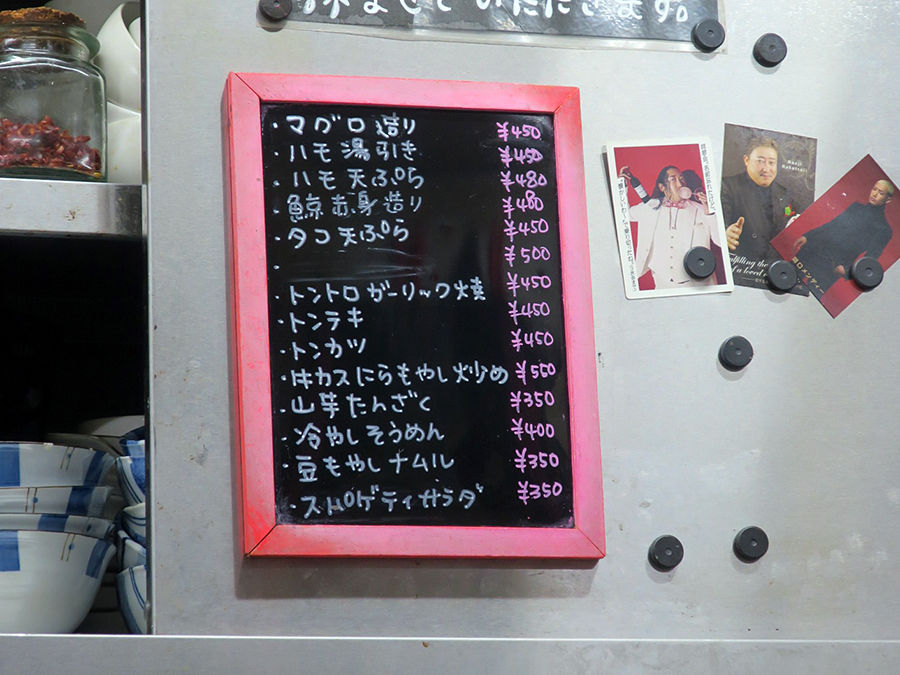 ませていただきます。
・マグロ造り ¥450
・ハモ湯引き ¥450
・ハモ天ぷら ¥480
・鯨赤身造り ¥480
・タコ天ぷら ¥450
・ ¥500
・トントロガーリック焼 ¥450
・トンテキ ¥450
・トンカツ ¥450
・牛カスにらもやし炒め ¥550
・山芋たんざく ¥350
・冷やしそうめん ¥400
・豆もやしナムル ¥350
・スパゲティサラダ ¥350
filling the
of a loved